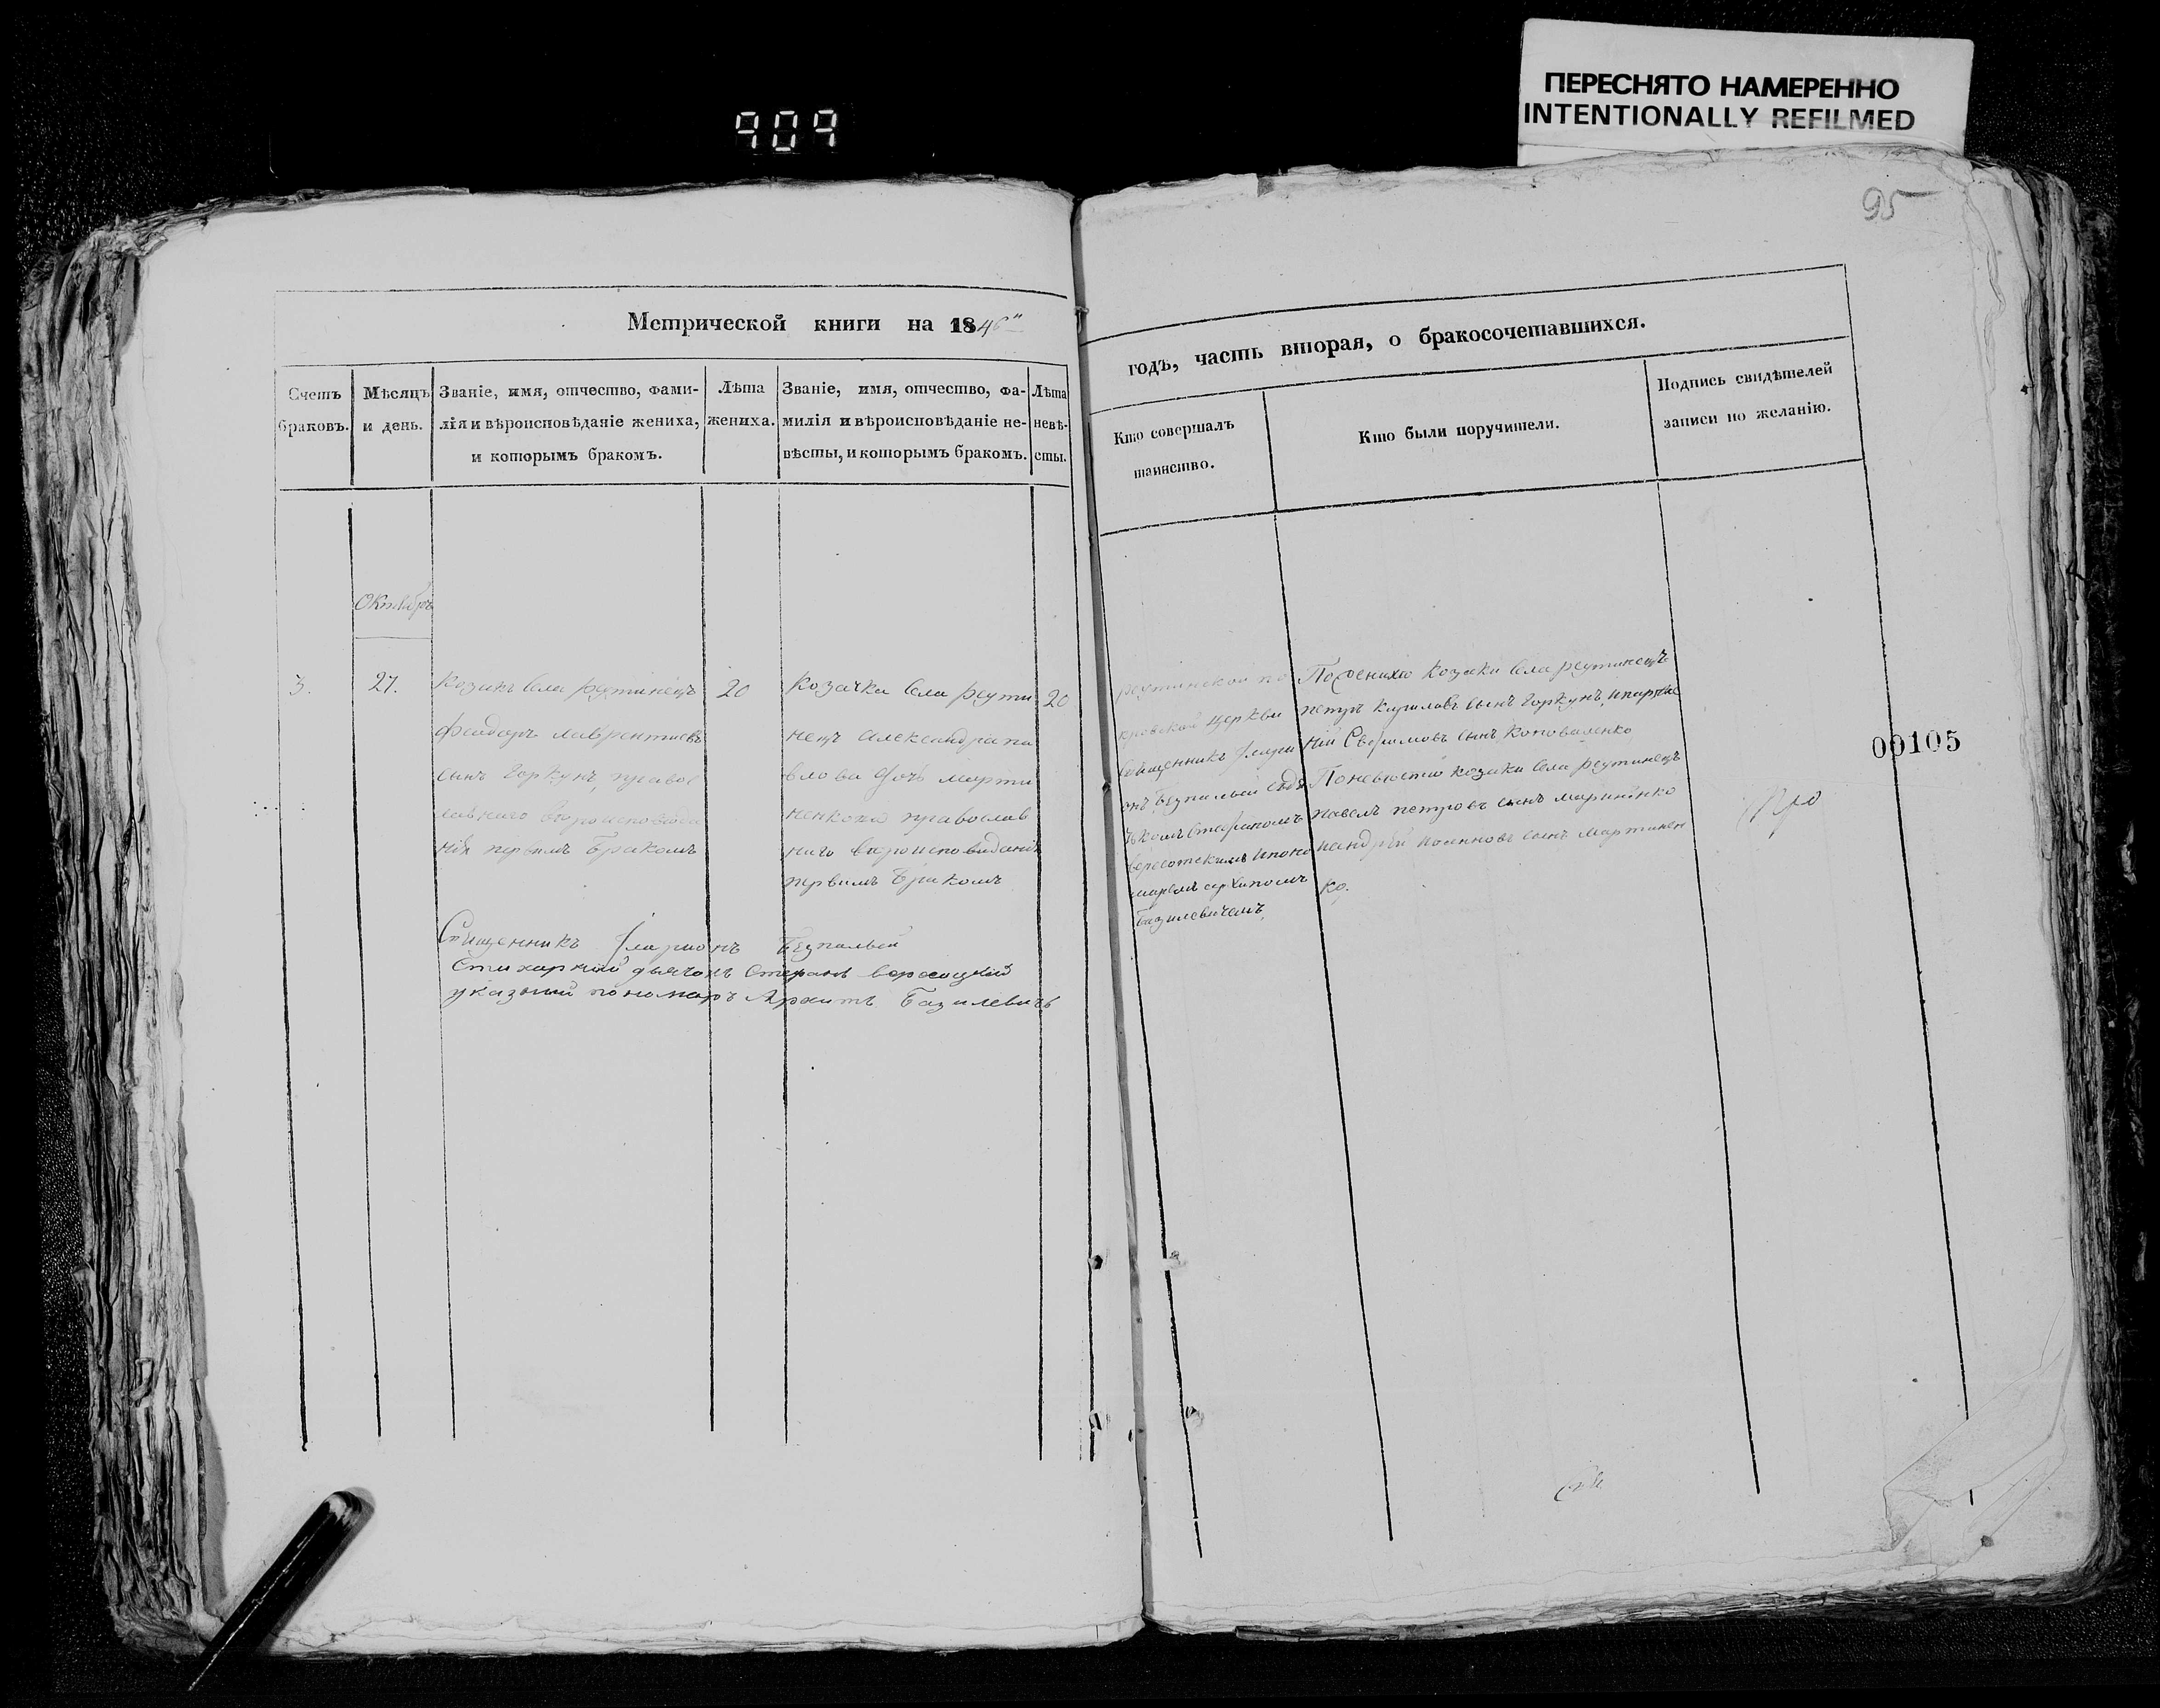 ПЕРЕСНЯТО НАМЕРЕННО
INTENTIONALLY REFILMED
909
95
Метрической книги на 1846
годъ, часть вторая, о бракосочетавшихся.
Счетъ
браковъ.
Мѣсяцъ
и день.
Званіе, имя, отчество, фами-
лія и вѣроисповѣданіе жениха,
и которымъ бракомъ.
Лѣта
жениха.
Званіе, имя, отчество, фа-
милія и вѣроисповѣданіе не-
вѣсты, и которымъ бракомъ.
Лѣта
невѣ-
сты.
Кто совершалъ
таинство.
Кто были поручители.
Подпись свидѣтелей
записи по желанію.
Октябрь
3.
27.
Козакъ села реутинецъ
феодоръ лаврентиевъ
сынъ Горкунъ, правос
лавнаго вѣроисповѣда
нія первымъ бракомъ
20
Козачка села реути
нецъ александра па
влова дочь марти
ненкова православ
наго вѣроисповѣданія
первымъ бракомъ
20
реутинской по
кровской церкви
священникъ Iлари
онъ Безпалый съ дя
чкомъ Стефаномъ
вересотскимъ и поно
маремъ архипомъ
базилевичемъ,
По женихѣ козаки села реутинецъ
петръ кириловъ сынъ Горкунъ, и парфе
ній сынъ коноваленко
По невѣстѣ козаки села реутинецъ
павелъ петровъ сынъ
иандрѣй сынъ мартинен
ко.
Священникъ Iларионъ Безпалый
Стихарный дьячокъ Стефанъ вересоцкий
указный пономаръ Архипъ Базилевичъ
00105